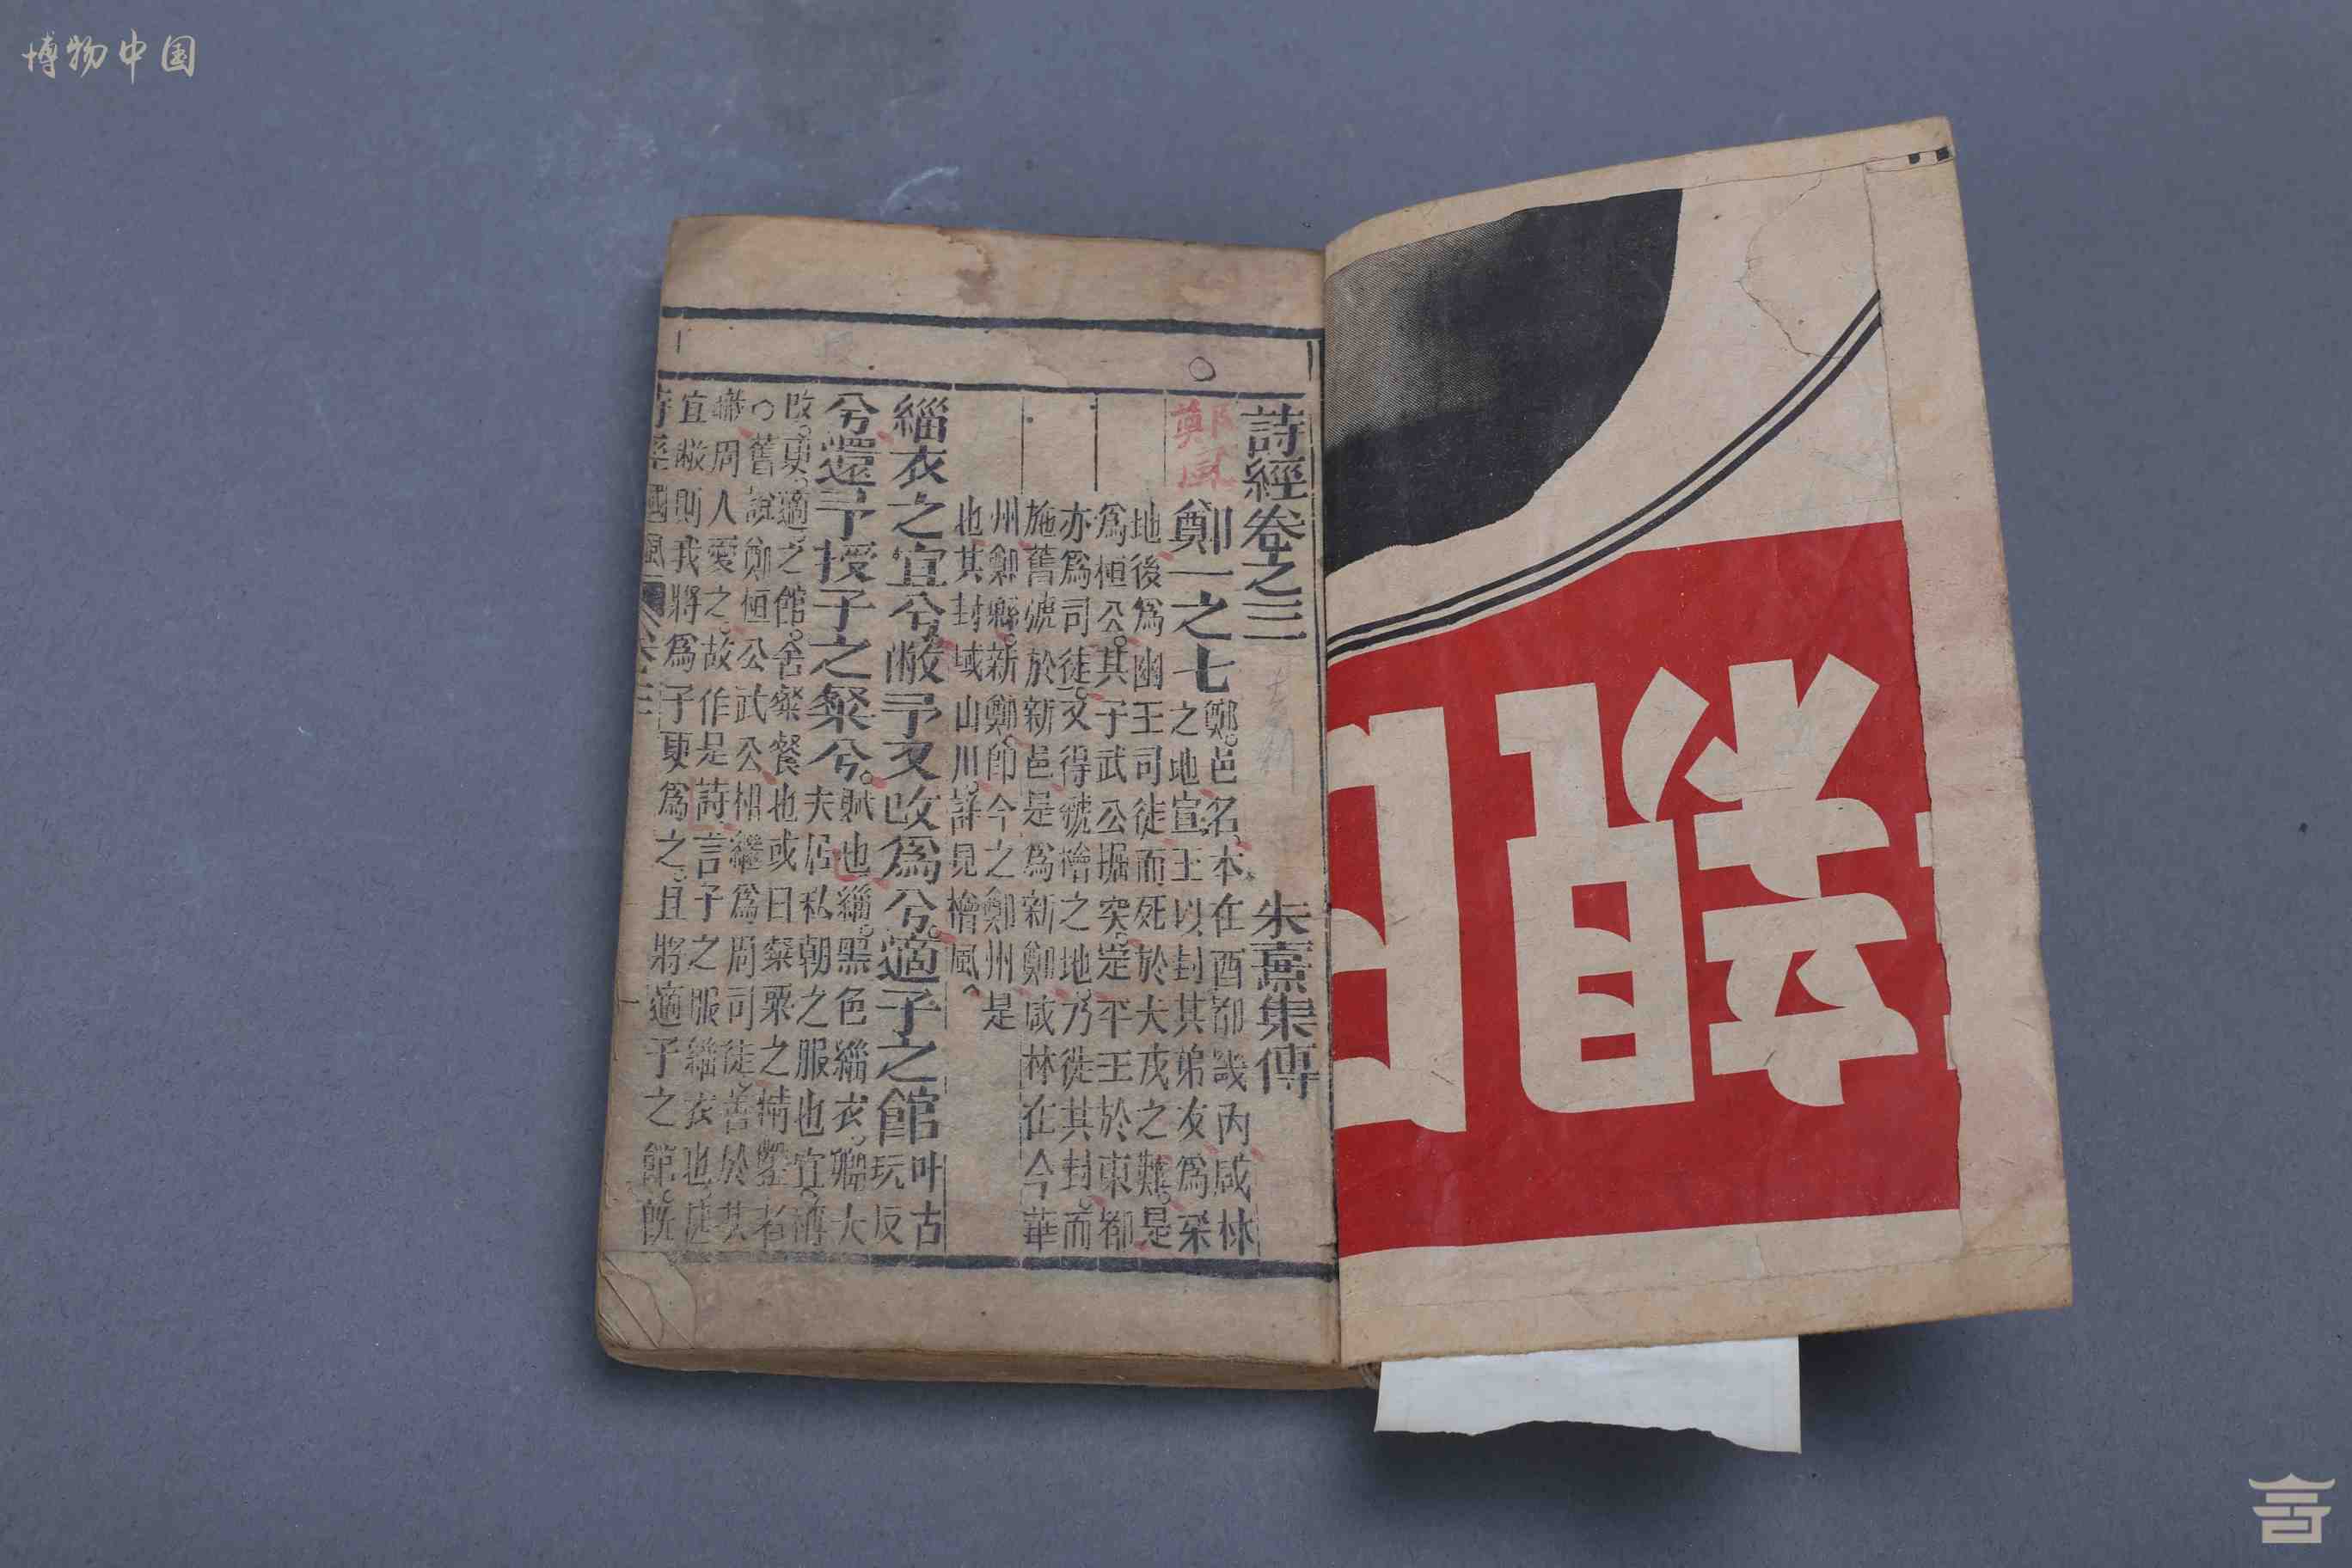 博物中国
詩經卷之三
朱熹集傳
鄭風
鄭一之七
鄭邑名本在西都畿內咸林
之地宣王以封其弟友爲采
地後爲幽王司徒而死於犬戎之難是
爲桓公其子武公掘突定平王於東都
亦爲司徒又得虢檜之地乃徙其封而
施舊號於新邑是爲新鄭咸林在今華
州鄭縣新鄭卽今之鄭州是
也其封域山川詳見檜風
緇衣之宜兮敝予又改爲兮適子之館
叶古
玩反
兮還予授子之粲兮
賦也緇黑色緇衣卿大
夫居私朝之服也宜稱
改更適之館舍粲餐也或曰粲粟之精鑿者
○舊說鄭桓公武公相繼爲周司徒善於其
職周人愛之故作是詩言子之服緇衣也甚
宜敝則我將爲子更爲之且將適子之館旣
詩經國風
卷三